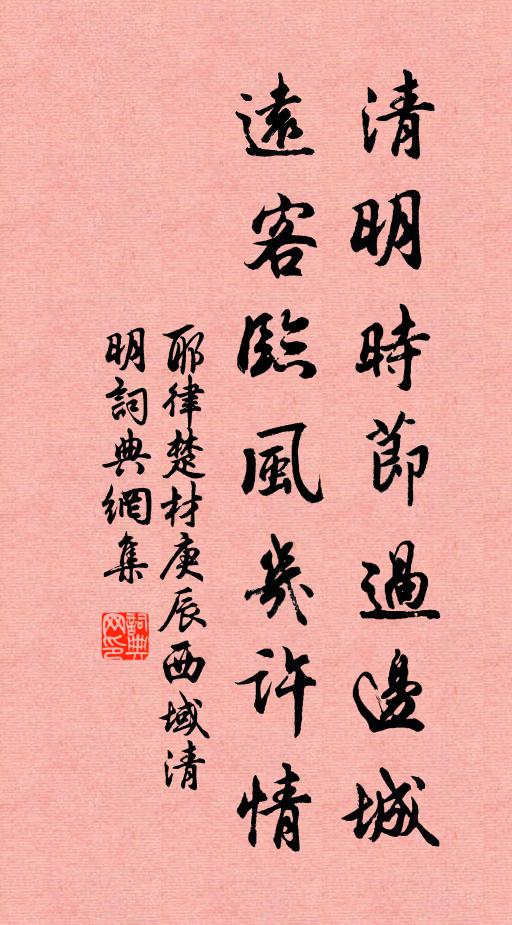 清明時節過邊城
遠客臨風幾許情
耶律楚材庚辰西域清
明詞典網集
詞典网印